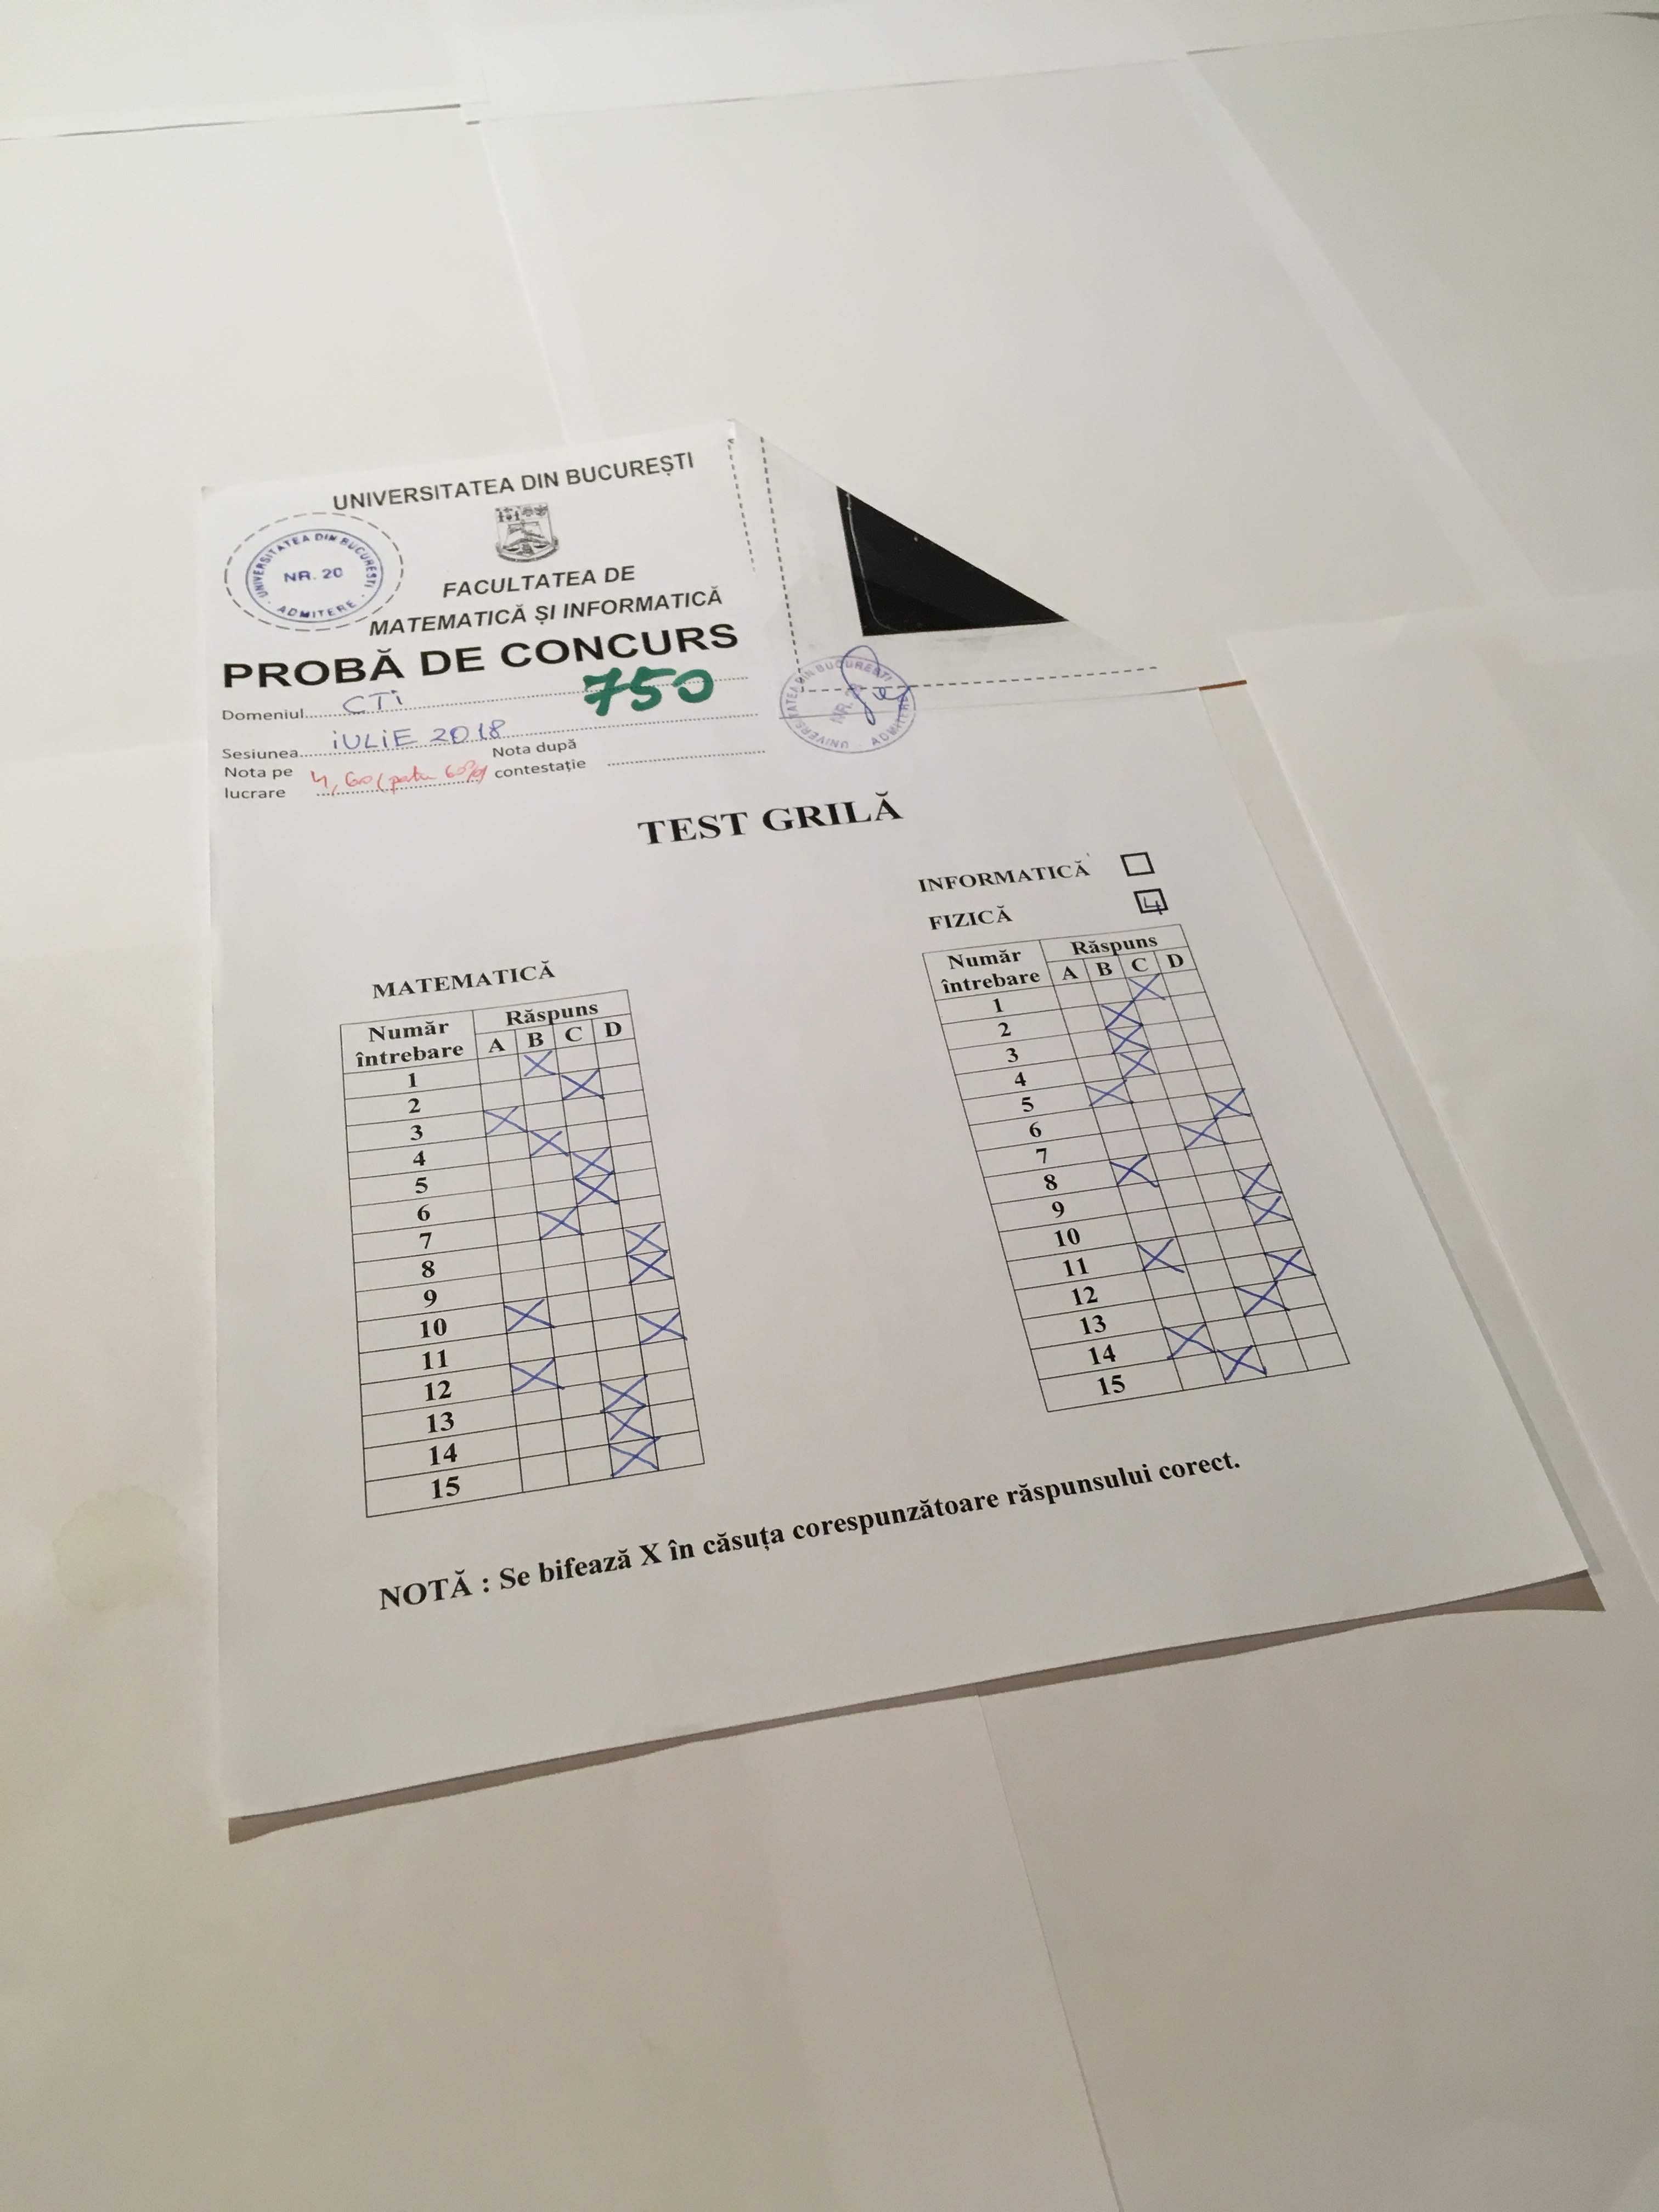 UNIVERSITATEA DIN BUCUREȘTI
UNIVERSITATEA DIN BUCUREȘTI
NR. 20
ADMITERE
FACULTATEA DE
MATEMATICĂ ȘI INFORMATICĂ
PROBĂ DE CONCURS
750
Domeniul CTi
Sesiunea iULiE 2018
Nota pe lucrare 4,60 (
Nota după contestație
UNIVERSITATEA DIN BUCUREȘTI
NR. 20
ADMITERE
TEST GRILĂ
INFORMATICĂ
FIZICĂ 4
MATEMATICĂ
Număr întrebare Răspuns
A B C D
1 X
2 X
3 X
4 X
5 X
6 X
7 X
8 X
9 X
10 X
11 X
12 X
13 X
14 X
15 X
Număr întrebare Răspuns
A B C D
1 X
2 X
3 X
4 X
5 X
6 X
7 X
8 X
9 X
10 X
11 X
12 X
13 X
14 X
15 X
NOTĂ : Se bifează X în căsuța corespunzătoare răspunsului corect.